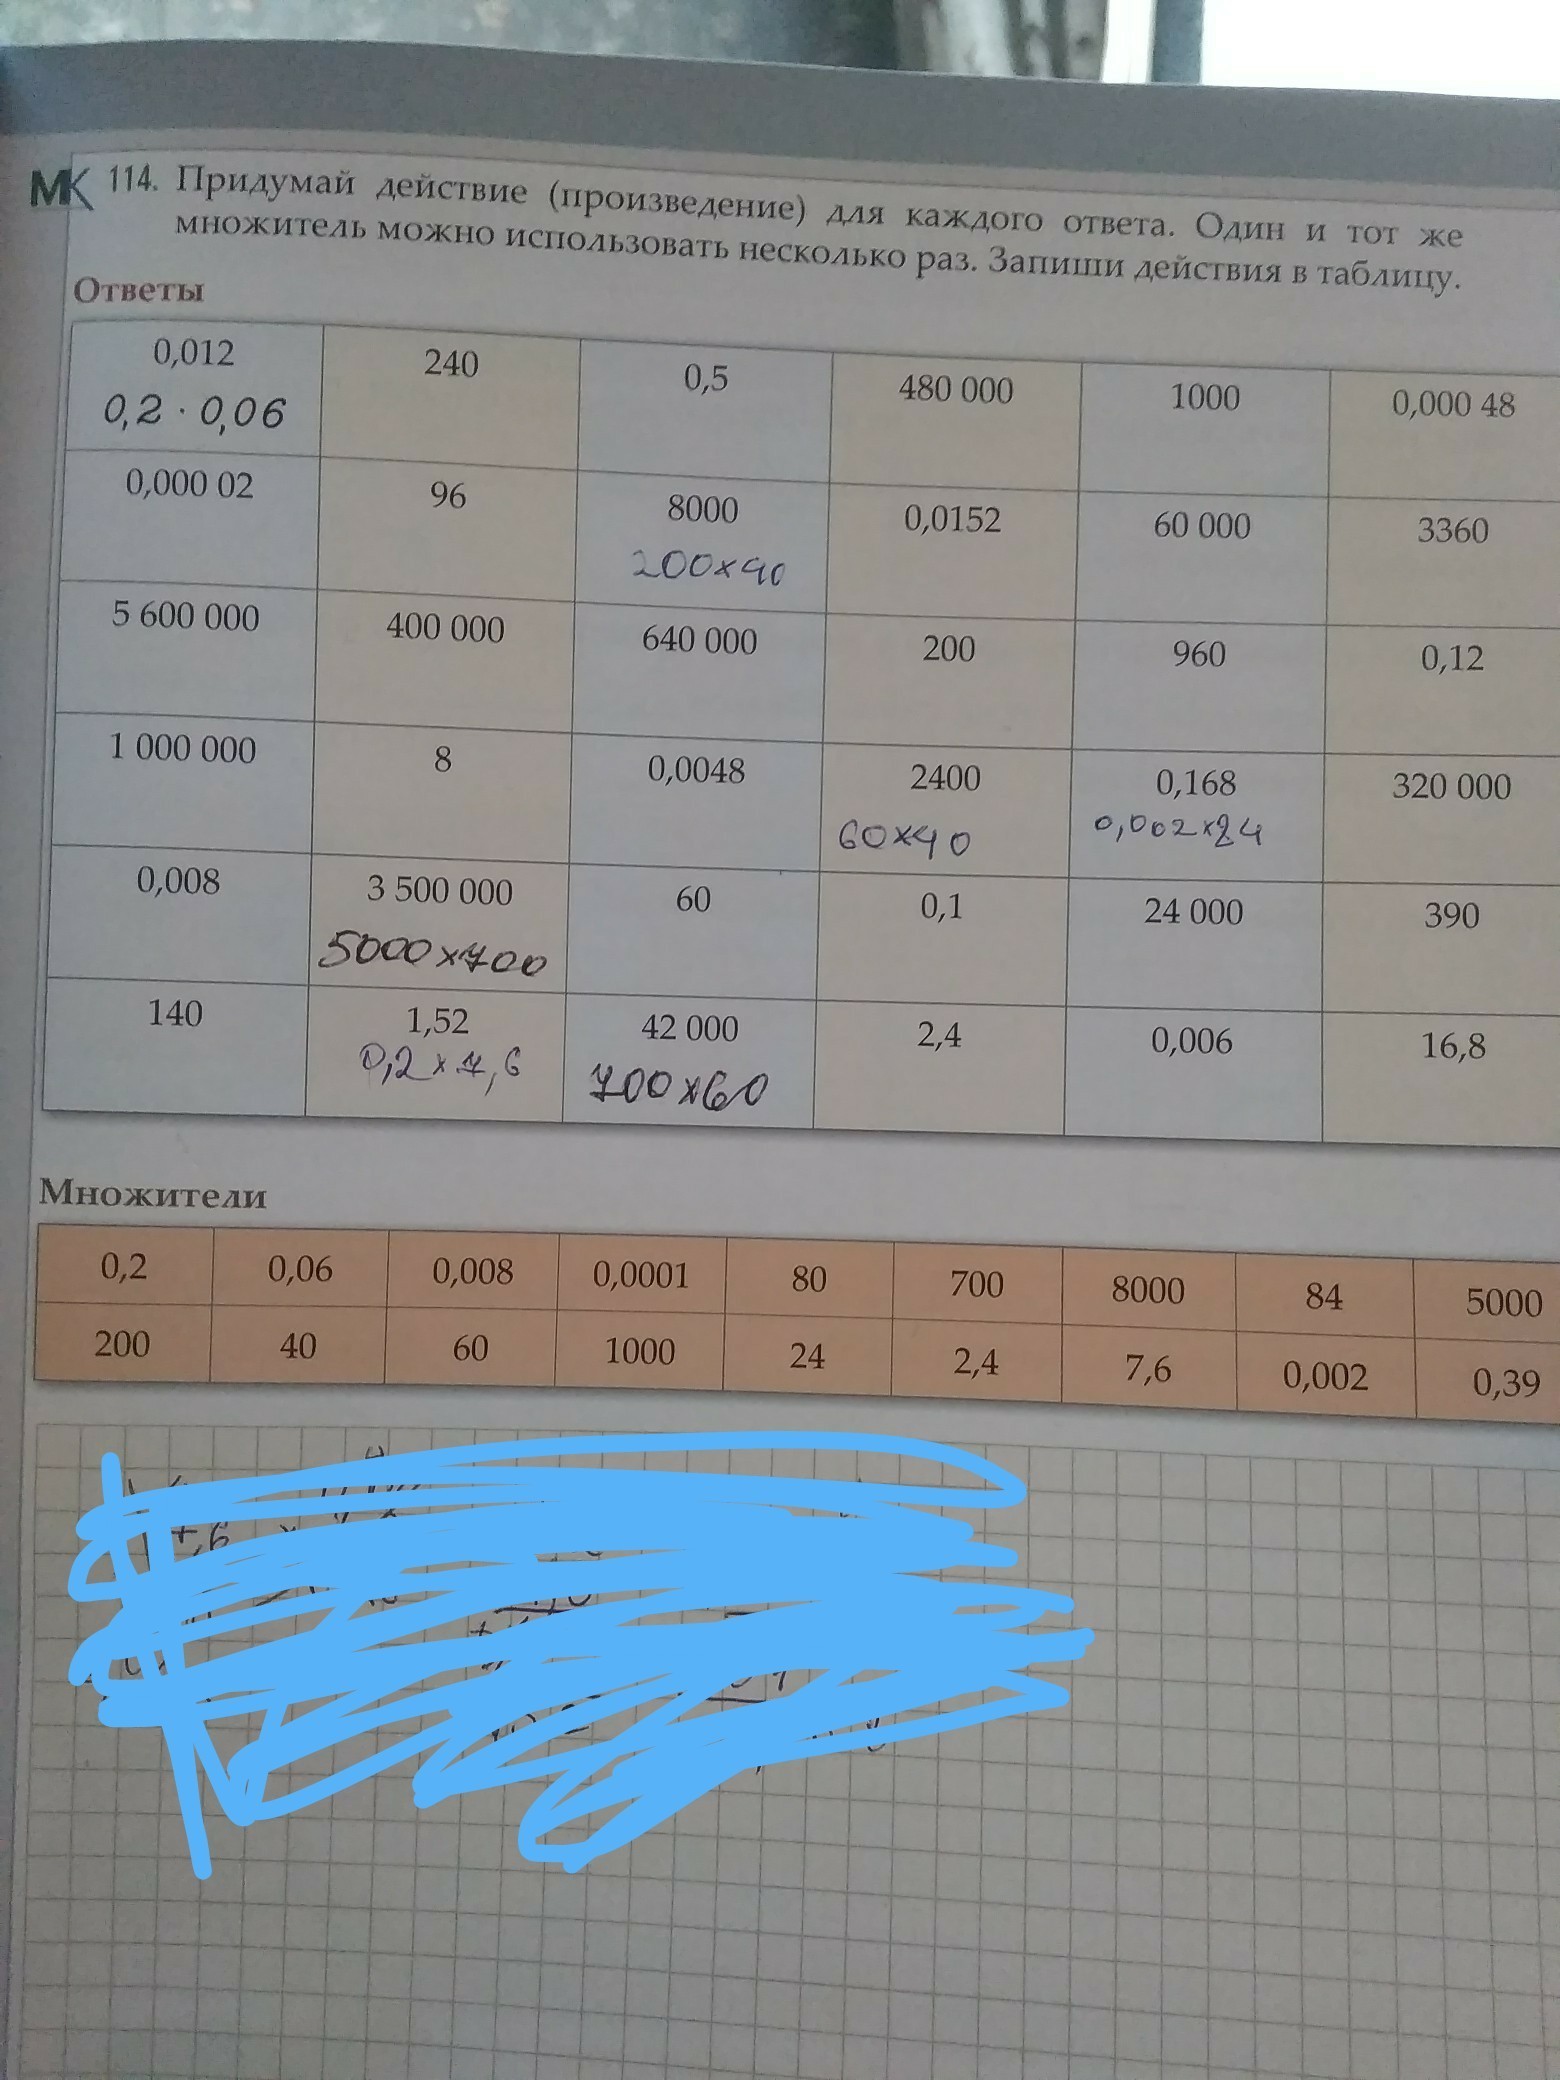 МК 114. Придумай действие (произведение) для каждого ответа. Один и тот же
множитель можно использовать несколько раз. Запиши действия в таблицу.
Ответы
0,012 240 0,5 480 000 1000 0,000 48
0,2 · 0,06
0,000 02 96 8000 0,0152 60 000 3360
200×40
5 600 000 400 000 640 000 200 960 0,12
1 000 000 8 0,0048 2400 0,168 320 000
60×40 0,002×84
0,008 3 500 000 60 0,1 24 000 390
5000×700
140 1,52 42 000 2,4 0,006 16,8
0,2×7,6 700×60
Множители
0,2 0,06 0,008 0,0001 80 700 8000 84 5000
200 40 60 1000 24 2,4 7,6 0,002 0,39